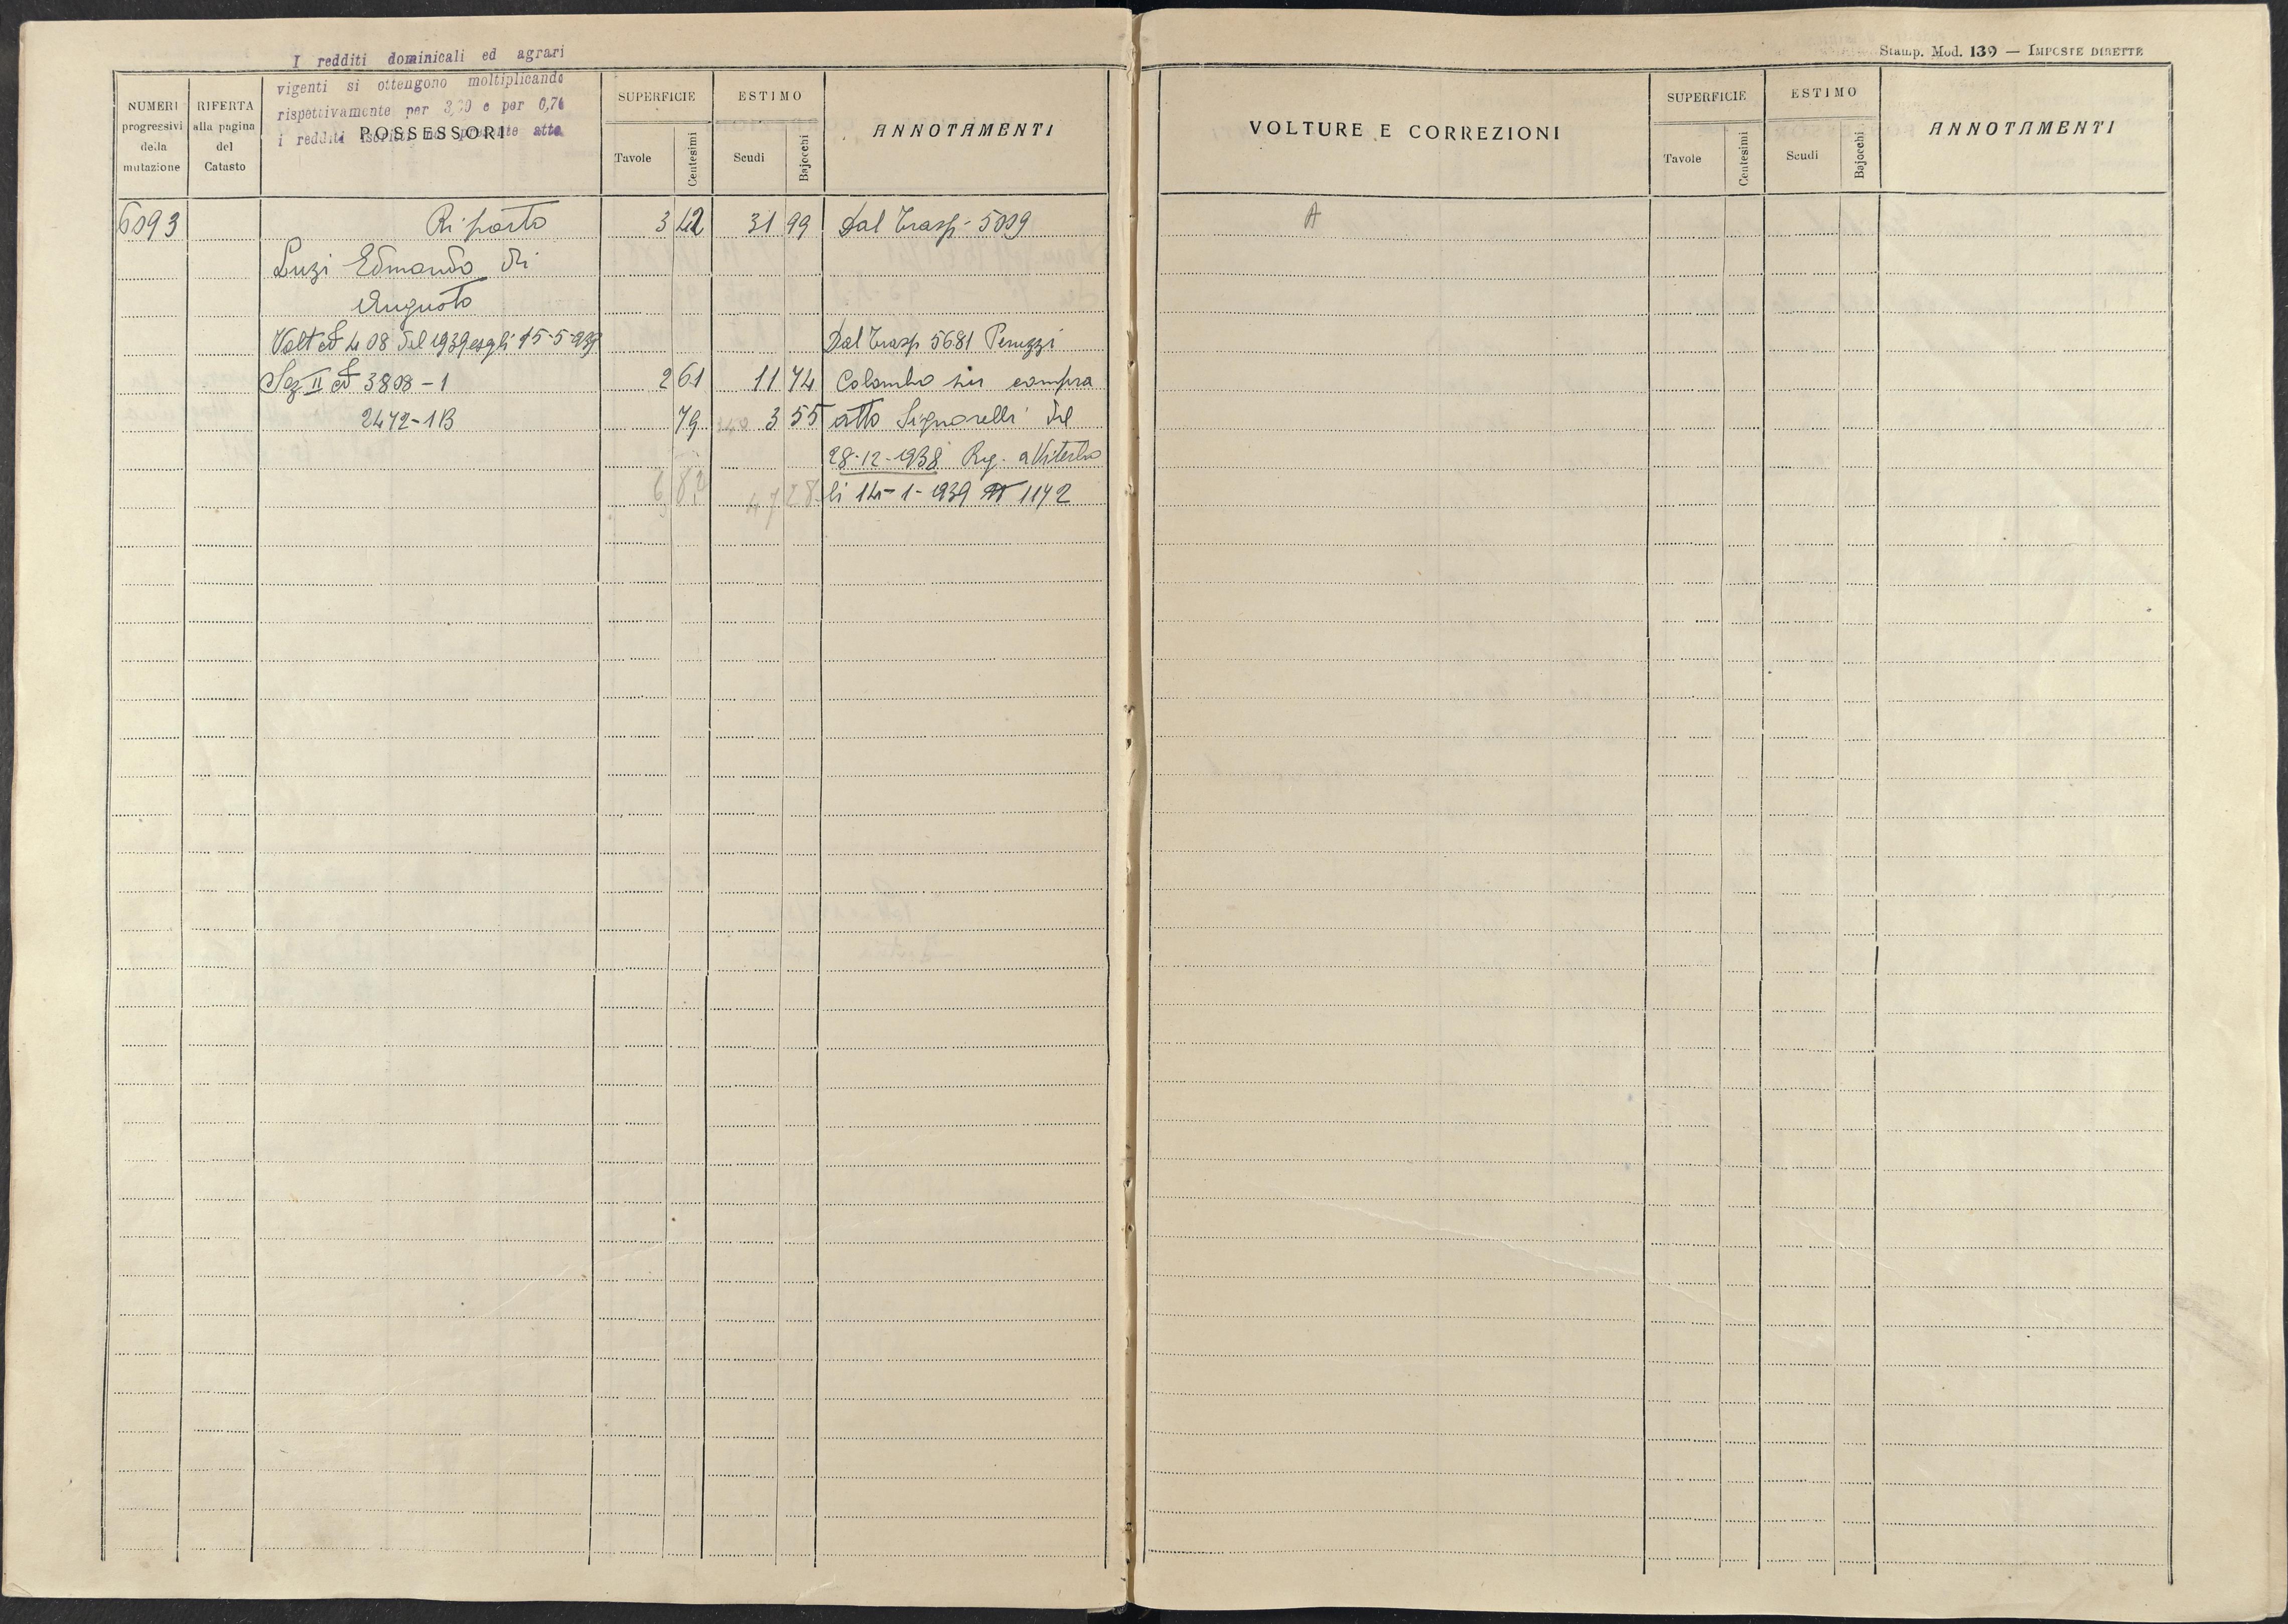 I redditi dominicali ed agrari
vigenti si ottengono moltiplicando
rispettivamente per 3,20 e per 0,76
i redditi iscritti nel presente atto
Stamp. Mod. 139 — IMPOSTE DIRETTE
NUMERI progressivi della mutazione
RIFERTA alla pagina del Catasto
POSSESSORI
SUPERFICIE
Tavole
Centesimi
ESTIMO
Scudi
Bajocchi
ANNOTAMENTI
VOLTURE E CORREZIONI
SUPERFICIE
Tavole
Centesimi
ESTIMO
Scudi
Bajocchi
ANNOTAMENTI
6093 Riporto 3 42 31 99 Dal Trasp. 5009
Luzi Edmondo di
Augusto
Volt N 408 del 1939 es gli 15-5-939 Dal Trasp 5681 Peruzzi
Sez II N 3808-1 2 61 11 74 Colombo per compra
2472-1B 79 3 55 atto Signorelli del
28-12-1938 Reg. a Viterbo
6 82 47 28 li 14-1-1939 N 1142
A